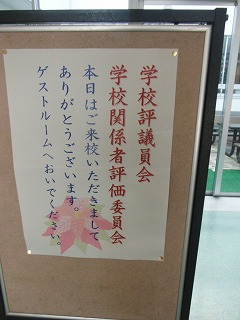 学校評議員会
学校関係者評価委員会
本日はご来校いただきまして
ありがとうございます。
ゲストルームへおいでください。